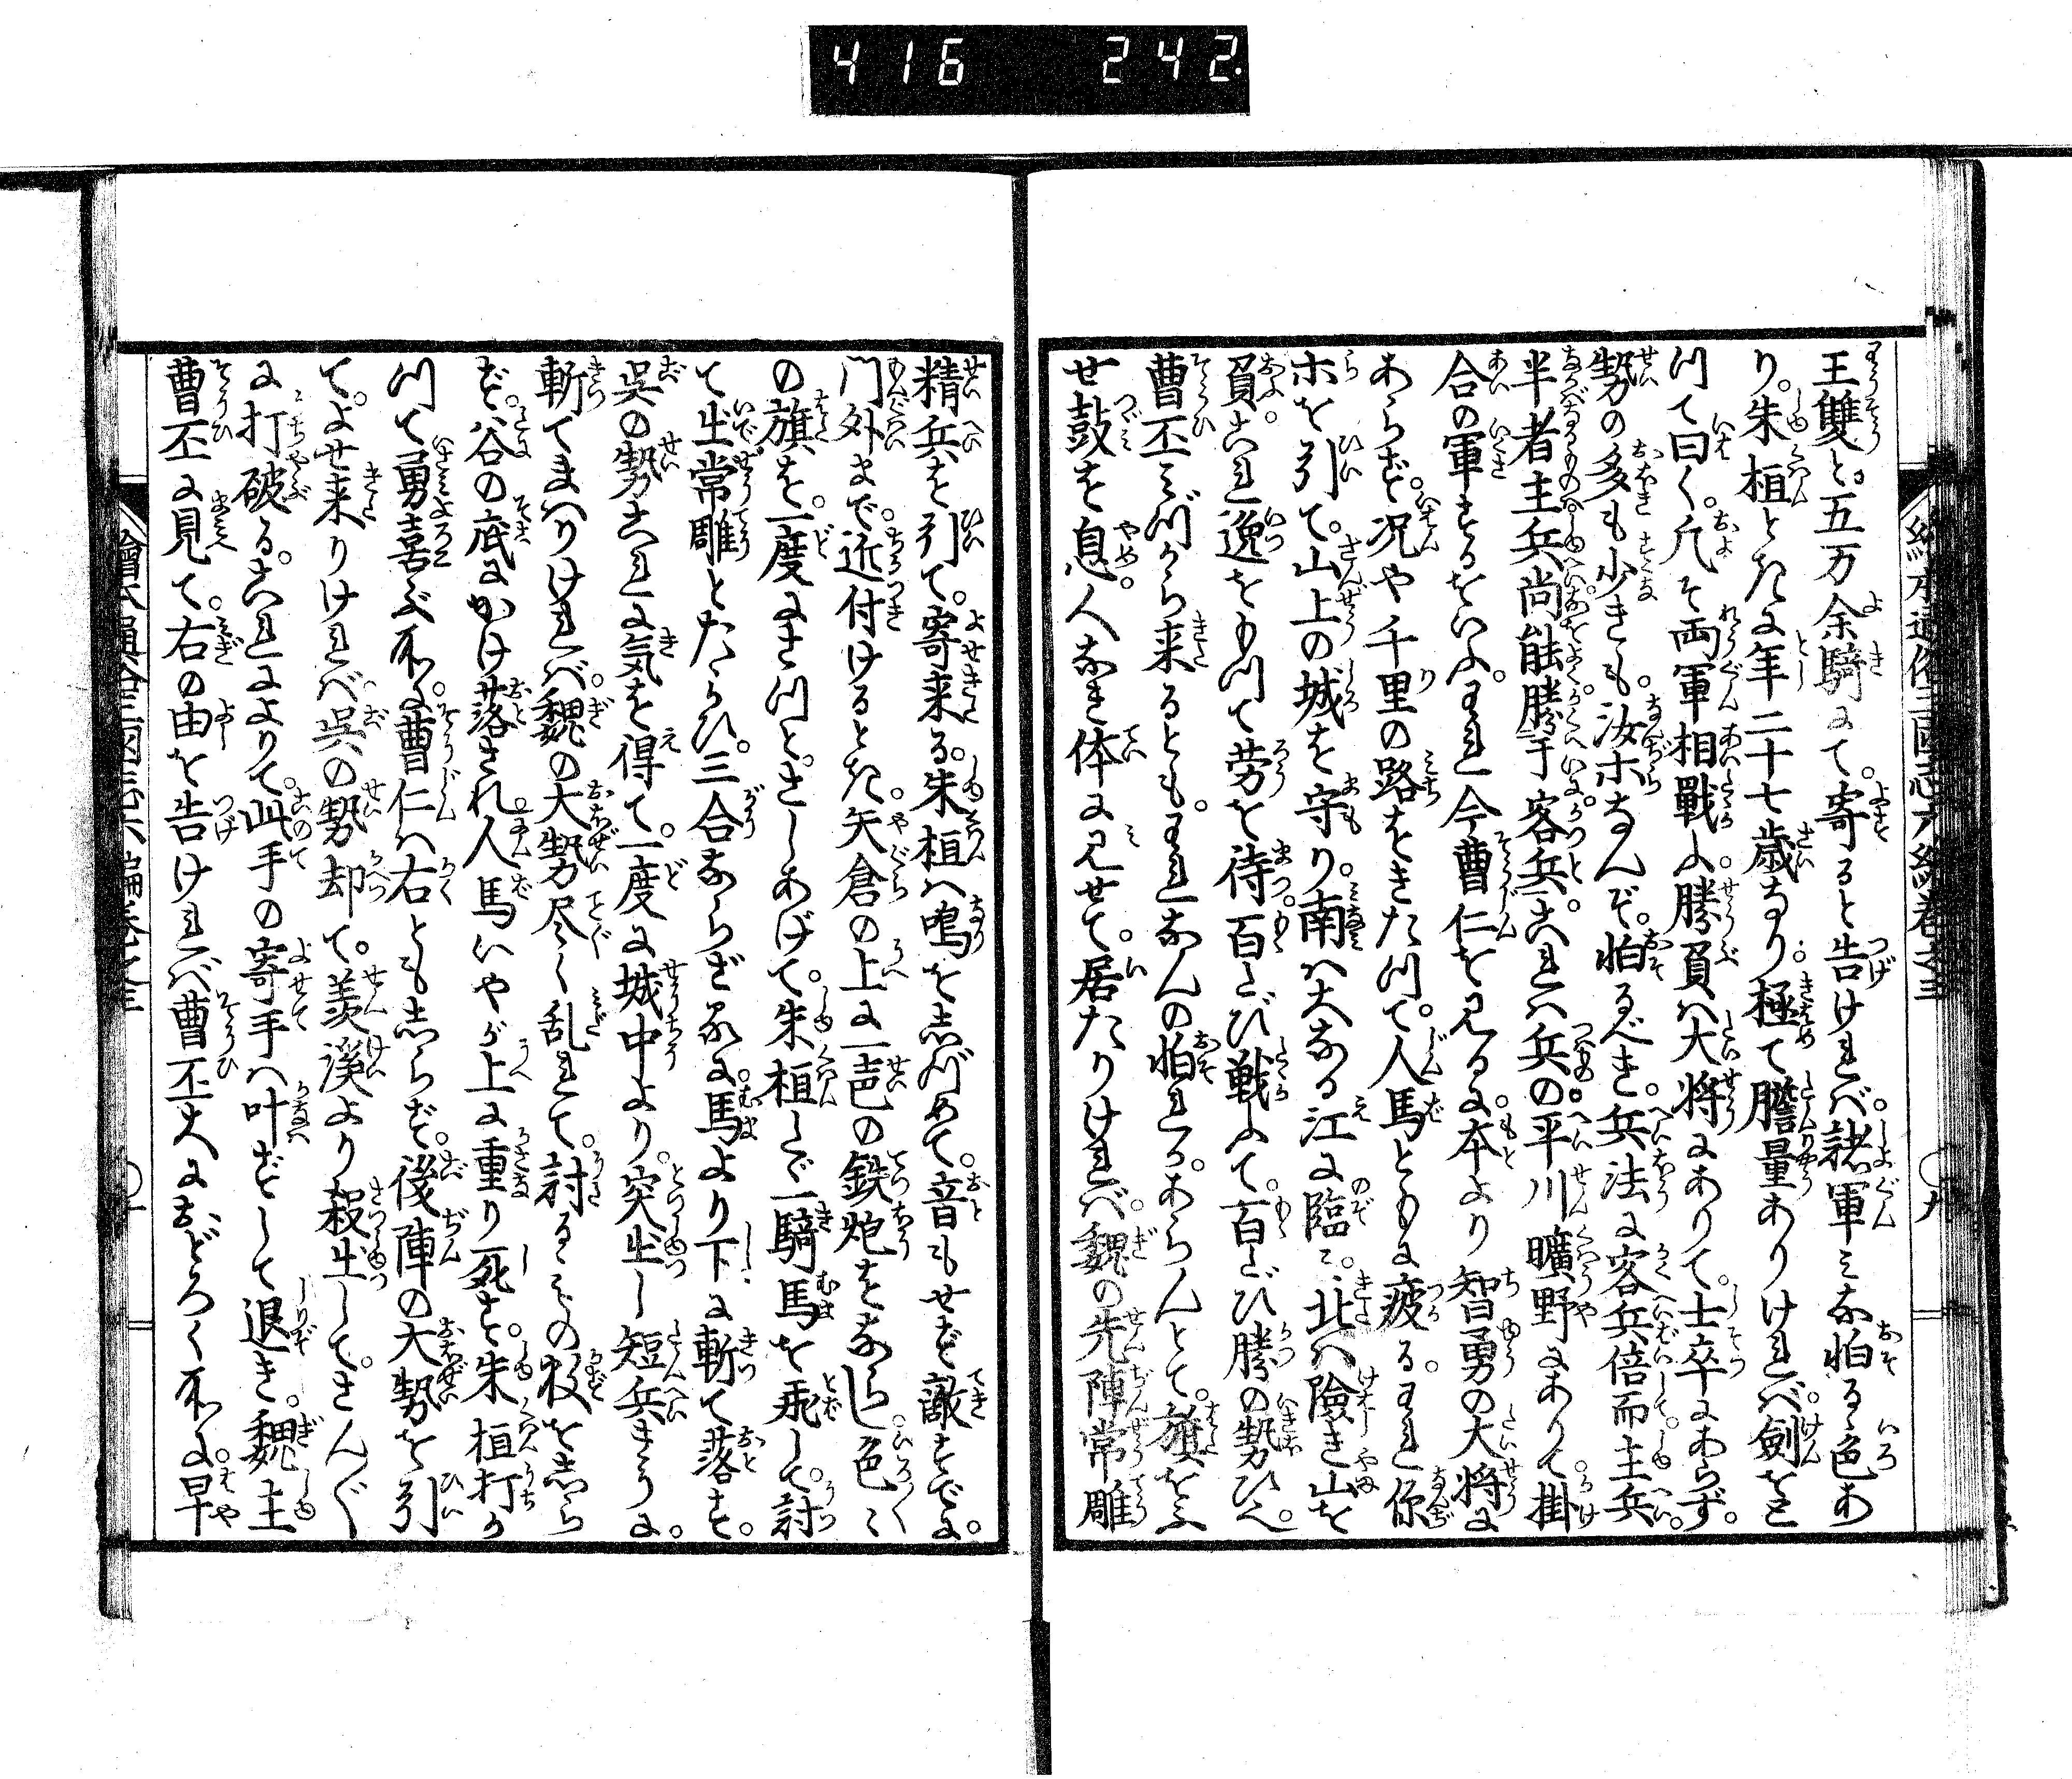 416 242
繪本通俗三國志六編巻之三
九
王雙と五万余騎にて。寄ると告けれバ。諸軍ミな怕るゝ色あ
り。朱桓ときに年二十七歳なり。極て膽量ありけれバ。劍をと
つて曰く。凡そ両軍相戰ふ。勝負ハ大将にありて。士卒にあらず。
勢の多も少きも。汝ホなんぞ。怕るべき。兵法に客兵倍而主兵。
半者主兵尚能勝乎客兵。これハ兵の。平川曠野にありて。掛
合の軍するをいふ。われ今曹仁を見るに。本より智勇の大将に
あらず。况や千里の路をきたつて。人馬ともに疲る。われ你
ホを引て。山上の城を守り。南ハ大なる江に臨ミ。北ハ險き山を
負。これ逸をもつて労を待。百たび戦ふて。百たび勝の勢ひ。
曹丕ミづから来るとも。われなんの怕れかあらんとて。旗をふ
せ鼓を息。人なき体に見せて。居たりけれバ。魏の先陣常雕
精兵を引て。寄来る。朱桓ハ鳴を志づめて。音もせず敵すでに。
門外まで。近付けるとき。矢倉の上に一声の鉄炮をならし。色〻
の旗を。一度にさつと。さしあげて。朱桓たゞ一騎馬を飛して。討
て出常雕とたゝかひ。三合ならざるに。馬より下に斬て落す。
呉の勢これに気を得て。一度に城中より。突出し短兵きうに。
斬てまハりけれバ。魏の大勢尽〻く乱れて。討るゝその数を志ら
ず。谷の底にかけ落され。人馬いやが上に重り死す。朱桓打か
つて勇喜ぶ所に。曹仁ハ右とも志らず。後陣の大勢を引
て。よせ来りけれバ。呉の勢却て。羨溪より殺出して。さんぐ
に打破る。これによりて。此手の寄手ハ叶ずして退き。魏主
曹丕に見て。右の由を告けれバ曹丕大におどろく所に。早